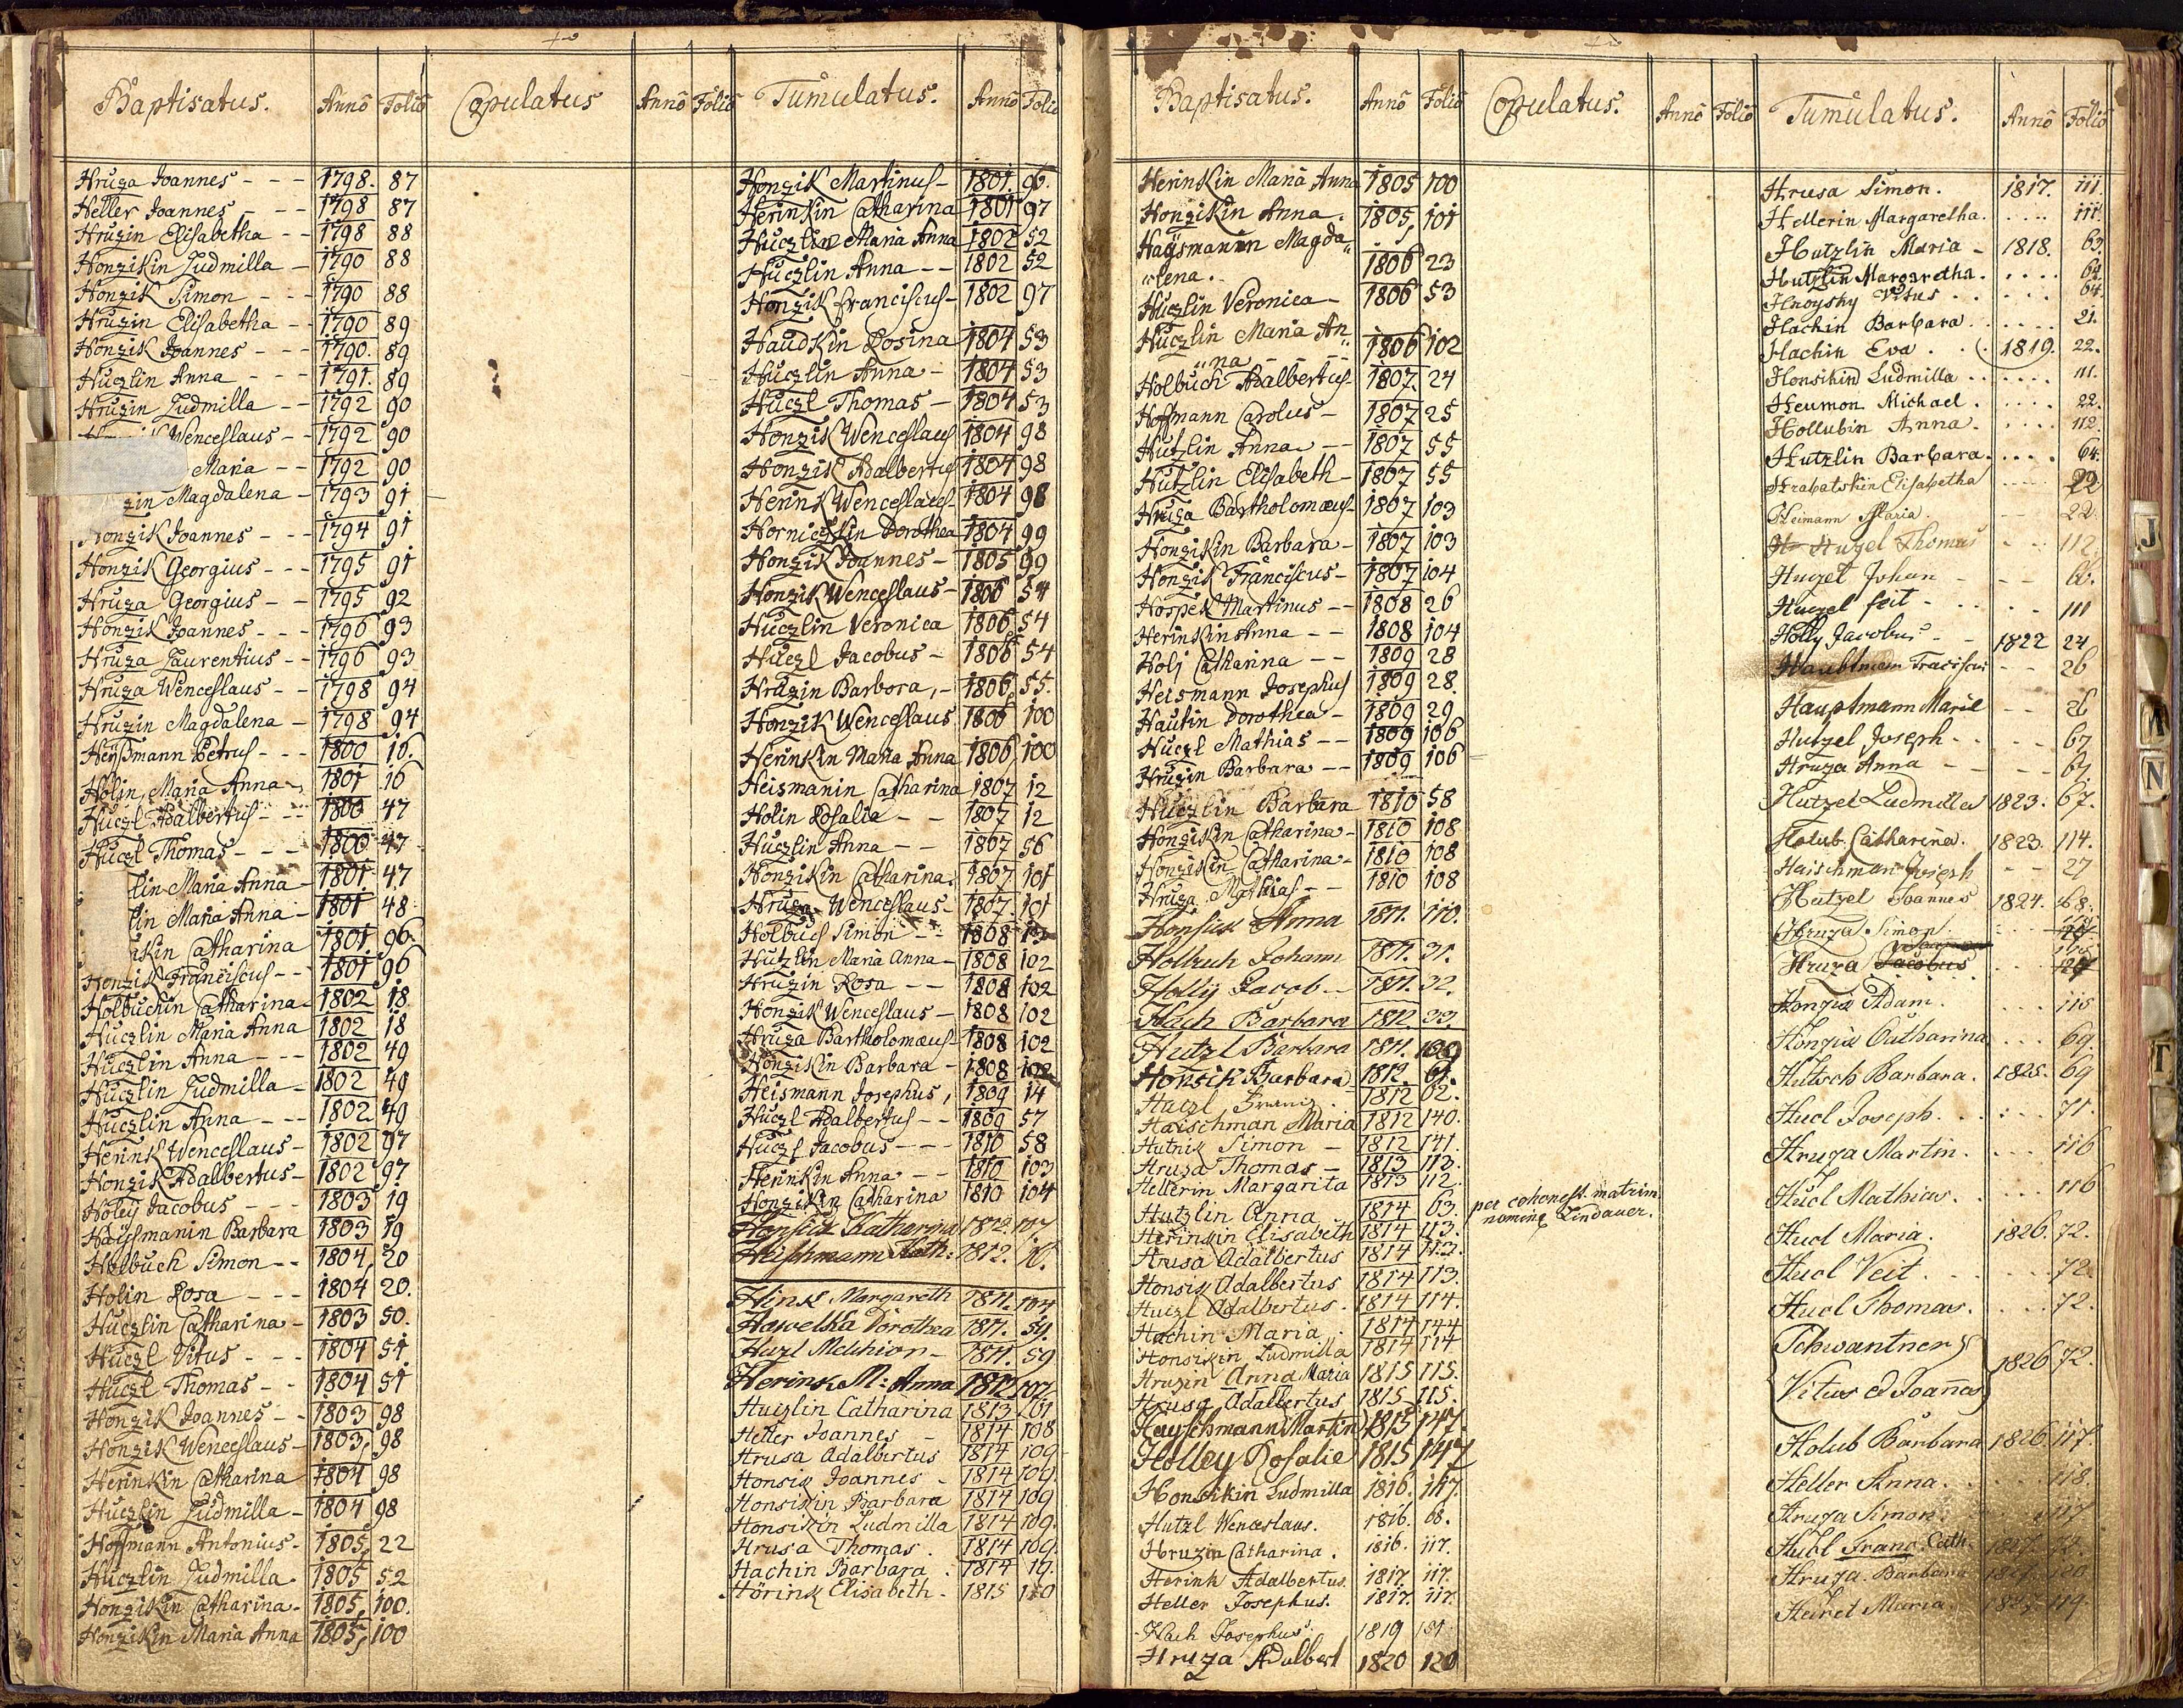 Baptisatus. Anno Folio Copulatus Anno Folio Tumulatus. Anno Folio
Hruza Joannes - - - 1798. 87
Heller Joannes - - - 1798 87
Hruzin Elisabetha - - 1798 88
Honzikin Ludmilla - 1790 88
Honzik Simon - - - 1790 88
Hruzin Elisabetha - - 1790 89
Honzik Joannes - - - 1790. 89
Huczlin Anna - - - 1791. 89
Hruzin Ludmilla - - 1792 90
Wenceslaus - - 1792 90
Maria - - 1792 90
zin Magdalena - 1793 91
Honzik Joannes - - - 1794 91
Honzik Georgius - - - 1795 91
Hruza Georgius - - 1795 92
Honzik Joannes - - - 1796 93
Hruza Laurentius - - 1796 93
Hruza Wenceslaus - - 1798 94
Hruzin Magdalena - 1798 94
Heÿsmann Petrus - - - 1800 16.
Holin, Maria Anna - 1801 16
Huczl Adalbertus - - - 1800 47
Huczl Thomas - - - 1800 47
lin Maria Anna - 1801 47
lin Maria Anna - 1801 48
ikin Catharina 1801. 96
Honzik Franciscus - - 1801 96
Holbuchin Catharina - 1802 18.
Huczlin Maria Anna 1802 18
Huczlin Anna - - - 1802 49
Huczlin Ludmilla - 1802 49
Huczlin Anna - - - 1802 49
Herink Wenceslaus - 1802 97
Honzik Adalbertus - 1802 97
Holeÿ Jacobus - - - 1803 19
Haÿsmanin Barbara 1803 19
Holbuch Simon - - 1804, 20
Holin Rosa - - - 1804 20.
Huczlin Catharina - 1803 50.
Huczl Vitus - - - 1804 51.
Huczl Thomas - - 1804 51
Honzik Joannes - - 1803 98
Honzik Wenceslaus - 1803, 98
Herinkin Catharina 1804 98
Huczlin Ludmilla - 1804 98
Hoffmann Antonius - 1805, 22
Huczlin Ludmilla - 1805 52
Honzikin Catharina - 1805, 100.
Honzikin Maria Anna 1805, 100
Honzik Martinus - 1801. 96.
Herinkin Catharina 1801 97
Huczlin Maria Anna 1802 52
Huczlin Anna - - 1802 52
Honzik Franciscus - 1802 97
Haudkin Rosina 1804 53
Huczlin Anna - 1804 53
Huczl Thomas - 1804 53
Honzik Wenceslaus 1804 98
Honzik Adalbertus 1804 98
Herink Wenceslaus - 1804 98
Horniczkin Dorothea 1804 99
Honzik Joannes - 1805 99
Honzik Wenceslaus - 1806 54
Huczlin Veronica 1806 54
Huczl Jacobus - 1806 54
Hruzin Barbora, - 1806, 55.
Honzik Wenceslaus 1806 100
Herinkin Maria Anna 1806, 100
Heismanin Catharina 1807 12
Holin Rosalia - - 1807 12
Huczlin Anna - - 1807 56
Honzikin Catharina. 1807 101
Hruza Wenceslaus - 1807 101
Holbuch Simon - - 1808
Hutzlin Maria Anna - 1808 102
Hruzin Rosa - - 1808 102
Honzik Wenceslaus - 1808 102
Hruza Bartholomæus - 1808 102
Honzikin Barbara - 1808 102
Heismann Josephus, 1809 14
Huczl Adalbertus - - 1809 57
Huczl Jacobus - - - 1810 58
Herinkin Anna - - 1810 103
Honzikin Catharina 1810 104
Honsik Katharina 1812. 107
Heischmann Kath: 1812. 16.
Hink Margareth 1811. 104
Hawelka Dorothea 1811. 59.
Huzl Melchior - 1811. 59
Herink M: Anna 1812 107.
Huczlin Catharina 1813 61
Heller Joannes - 1814 108
Hrusa Adalbertus 1814 109
Honsik Joannes - 1814 109.
Honsikin Barbara 1814 109
Honsikin Ludmilla 1814 109.
Hrusa Thomas. 1814 109.
Hachin Barbara. 1814 19.
Hörink Elisabeth - 1815 110
Baptisatus. Anno Folio Copulatus. Anno Folio Tumulatus. Anno Folio
Herinkin Maria Anna 1805 100
Honzikin Anna. 1805, 101
Haÿsmanin Magda„
„lena. 1806 23
Huczlin Veronica - 1806 53
Huczlin Maria An„
„na - - - - 1806 102
Holbuch Adalbertus - 1807. 24
Hoffmann Carolus - 1807 25
Hutzlin Anna - - 1807 55
Hutzlin Elisabeth - 1807 55
Hruza Bartholomæus - 1807 103
Honzikin Barbara - 1807 103
Honzik Franciscus - 1807 104
Hospek Martinus - - 1808 26
Herinkin Anna - - 1808 104
Holj Catharina - - 1809 28
Heismann Josephus 1809 28.
Hautin Dorothea - 1809 29
Huczl Mathias - - 1809 106
Hruzin Barbara - - 1809 106
Huczlin Barbara 1810 58
Honzikin Catharina - 1810 108
Honzikin Catharina - 1810 108
Hruza Mathias - - 1810 108
Honsik Anna 1811. 110.
Hollbuch Johann 1811. 31.
Hollÿ Jacob - - 1811. 32.
Hach Barbara 1812. 33.
Hutzl Barbara 1811.
Honsik Barbara 1812. 61.
Huczl Franz. 1812 62.
Haischman Maria 1812 140.
Hutnik Simon - 1812 141.
Hrusa Thomas - 1813 113.
Hellerin Margarita 1813 112.
Hutzlin Anna 1814 63. per cohonest. matrim.
nomine Lindauer.
Herinkin Elisabeth 1814 113.
Hrusa Adalbertus 1814 113.
Honsik Adalbertus 1814 113.
Huczl Adalbertus. 1814 114.
Hachin Maria. 1814 144
Honsikin Ludmilla 1814 114
Hruzin Anna Maria 1815 115.
Hrusa Adalbertus 1815 115.
Hayschmann Martin 1815 147.
Holley Rosalie 1815 147
Honsikin Ludmilla 1816. 117.
Hutzl Wenceslaus. 1816. 68.
Hruzin Catharina. 1816. 117.
Herink Adalbertus. 1817. 117.
Heller Josephus. 1817. 117.
Hach Josephus. 1819 151.
Hruza Adalbert 1820 120
Hrusa Simon. 1817. 111.
Hellerin Margaretha. .... 111.
Hutzlin Maria - 1818. 63.
Hutzlin Margaretha. .... 64.
Hnoysky Vitus ..... 64.
Hachin Barbara ..... 21.
Hachin Eva .. 1819. 22.
Honsikin Ludmilla ...... 111.
Heumon Michael ..... 22.
Hollubin Anna ..... 112.
Hutzlin Barbara ..... 64.
Hrabatskin Elisabetha .... 22
Heimann Maria. - - 22.
Hutzel Thomas - - 112.
Huzel Johan - - - 66.
Huzel Feit - ..... 111
Holly Jacobus - - 1822 24
Haubtman Franciscus - - 26
Hauptmann Marie - - 26
Hutzel Joseph - - - - 67
Hruza Anna - - - - 67.
Hutzel Ludmilla 1823. 67.
Holub Catharina. 1823. 114.
Haischman Joseph - - 27
Hutzel Joannes 1824. 68.
Hruza Simon. ....
Hruza Jacobus ...
Honzik Adam. .... 115
Honzik Catharina ... 69.
Hutsch Barbara. 1825. 69
Hucl Joseph ...... 71.
Hruza Martin. .... 116
Hucl Mathias. .... 116
Hucl Maria. 1826. 72.
Hucl Veit ...... 72.
Hucl Thomas. .... 72.
Schwantner
Vitus et Joannes 1826 72.
Holub Barbara 1826. 117.
Heller Anna ..... 118.
Hruza Simon. 117
Hubl Franz Cath. 1827. 72.
Hruza Barbara 1827. 120
Heiret Maria. 119
J
M
N
T